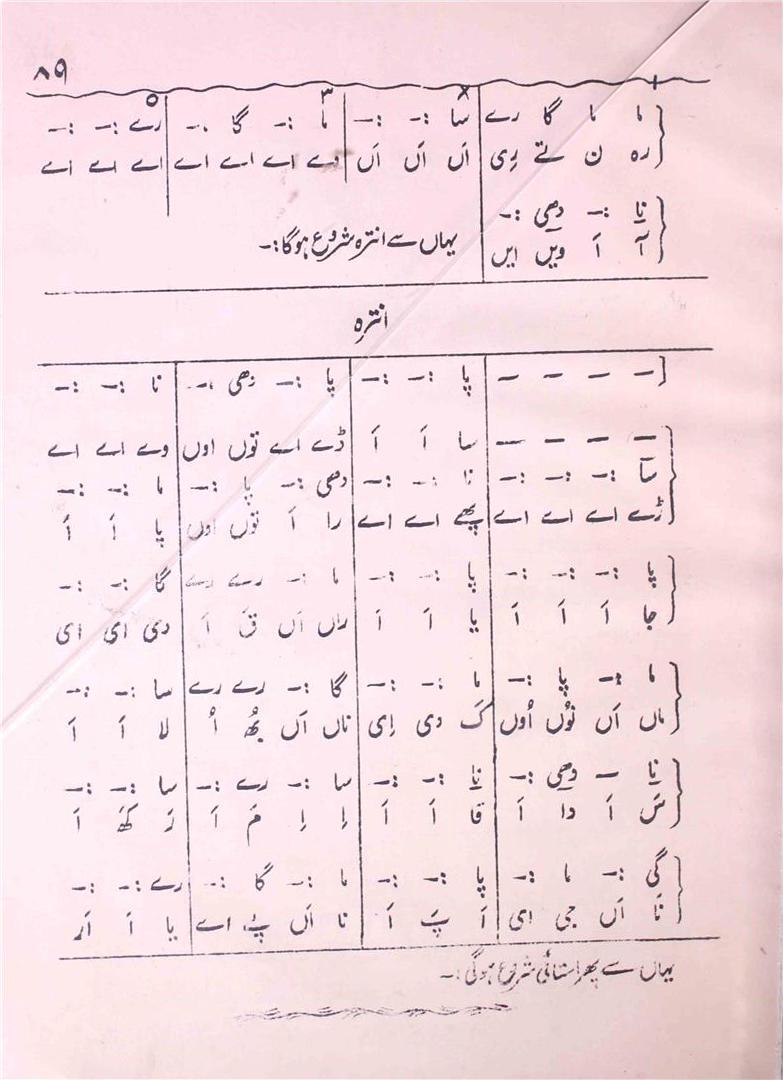 ۸۹
+ × ۳ ه
ما ما گا رے سا :- :- ما :- گا :- رے :- :-
رہ ن تے رِی اَں اَں اَں وے اے اے اے اے اے اے
نا :- دھی :-
آ اَ ویں ایں یہاں سے انترہ شروع ہوگا :-
انترہ
– – – – پا :- :- پا :- دھی :- نا :- :-
– – – – سا اَ اَ ڈے اے توں اوں وے اے اے
سا :- :- :- نا :- :- دھی :- پا :- ما :- :-
ڑے اے اے اے پھے اے اے را اَ توں اوں پا اَ اَ
پا :- :- :- پا :- :- ما :- رے رے گا :- :-
جا اَ اَ اَ یا اَ اَ راں اَں قَ اَ دی ای ای
ما :- پا :- ما :- :- گا :- رے رے سا :- :-
ماں اَں نُوں اُوں کَ دی اِی ناں اَں بھُ اُ لا اَ اَ
نا – دھی :- نا :- :- سا :- رے :- سا :- :-
سَ اَ دا اَ قا اَ اَ اِ اِ مَ اَ رَ کھَ اَ
گی :- ما :- پا :- :- ما :- گا :- رے :- :-
نَا اَں جی ای اَ پَ اَ نا اَں پئے اے یا اَ اَر
یہاں سے پھر استائی شروع ہوگی :-